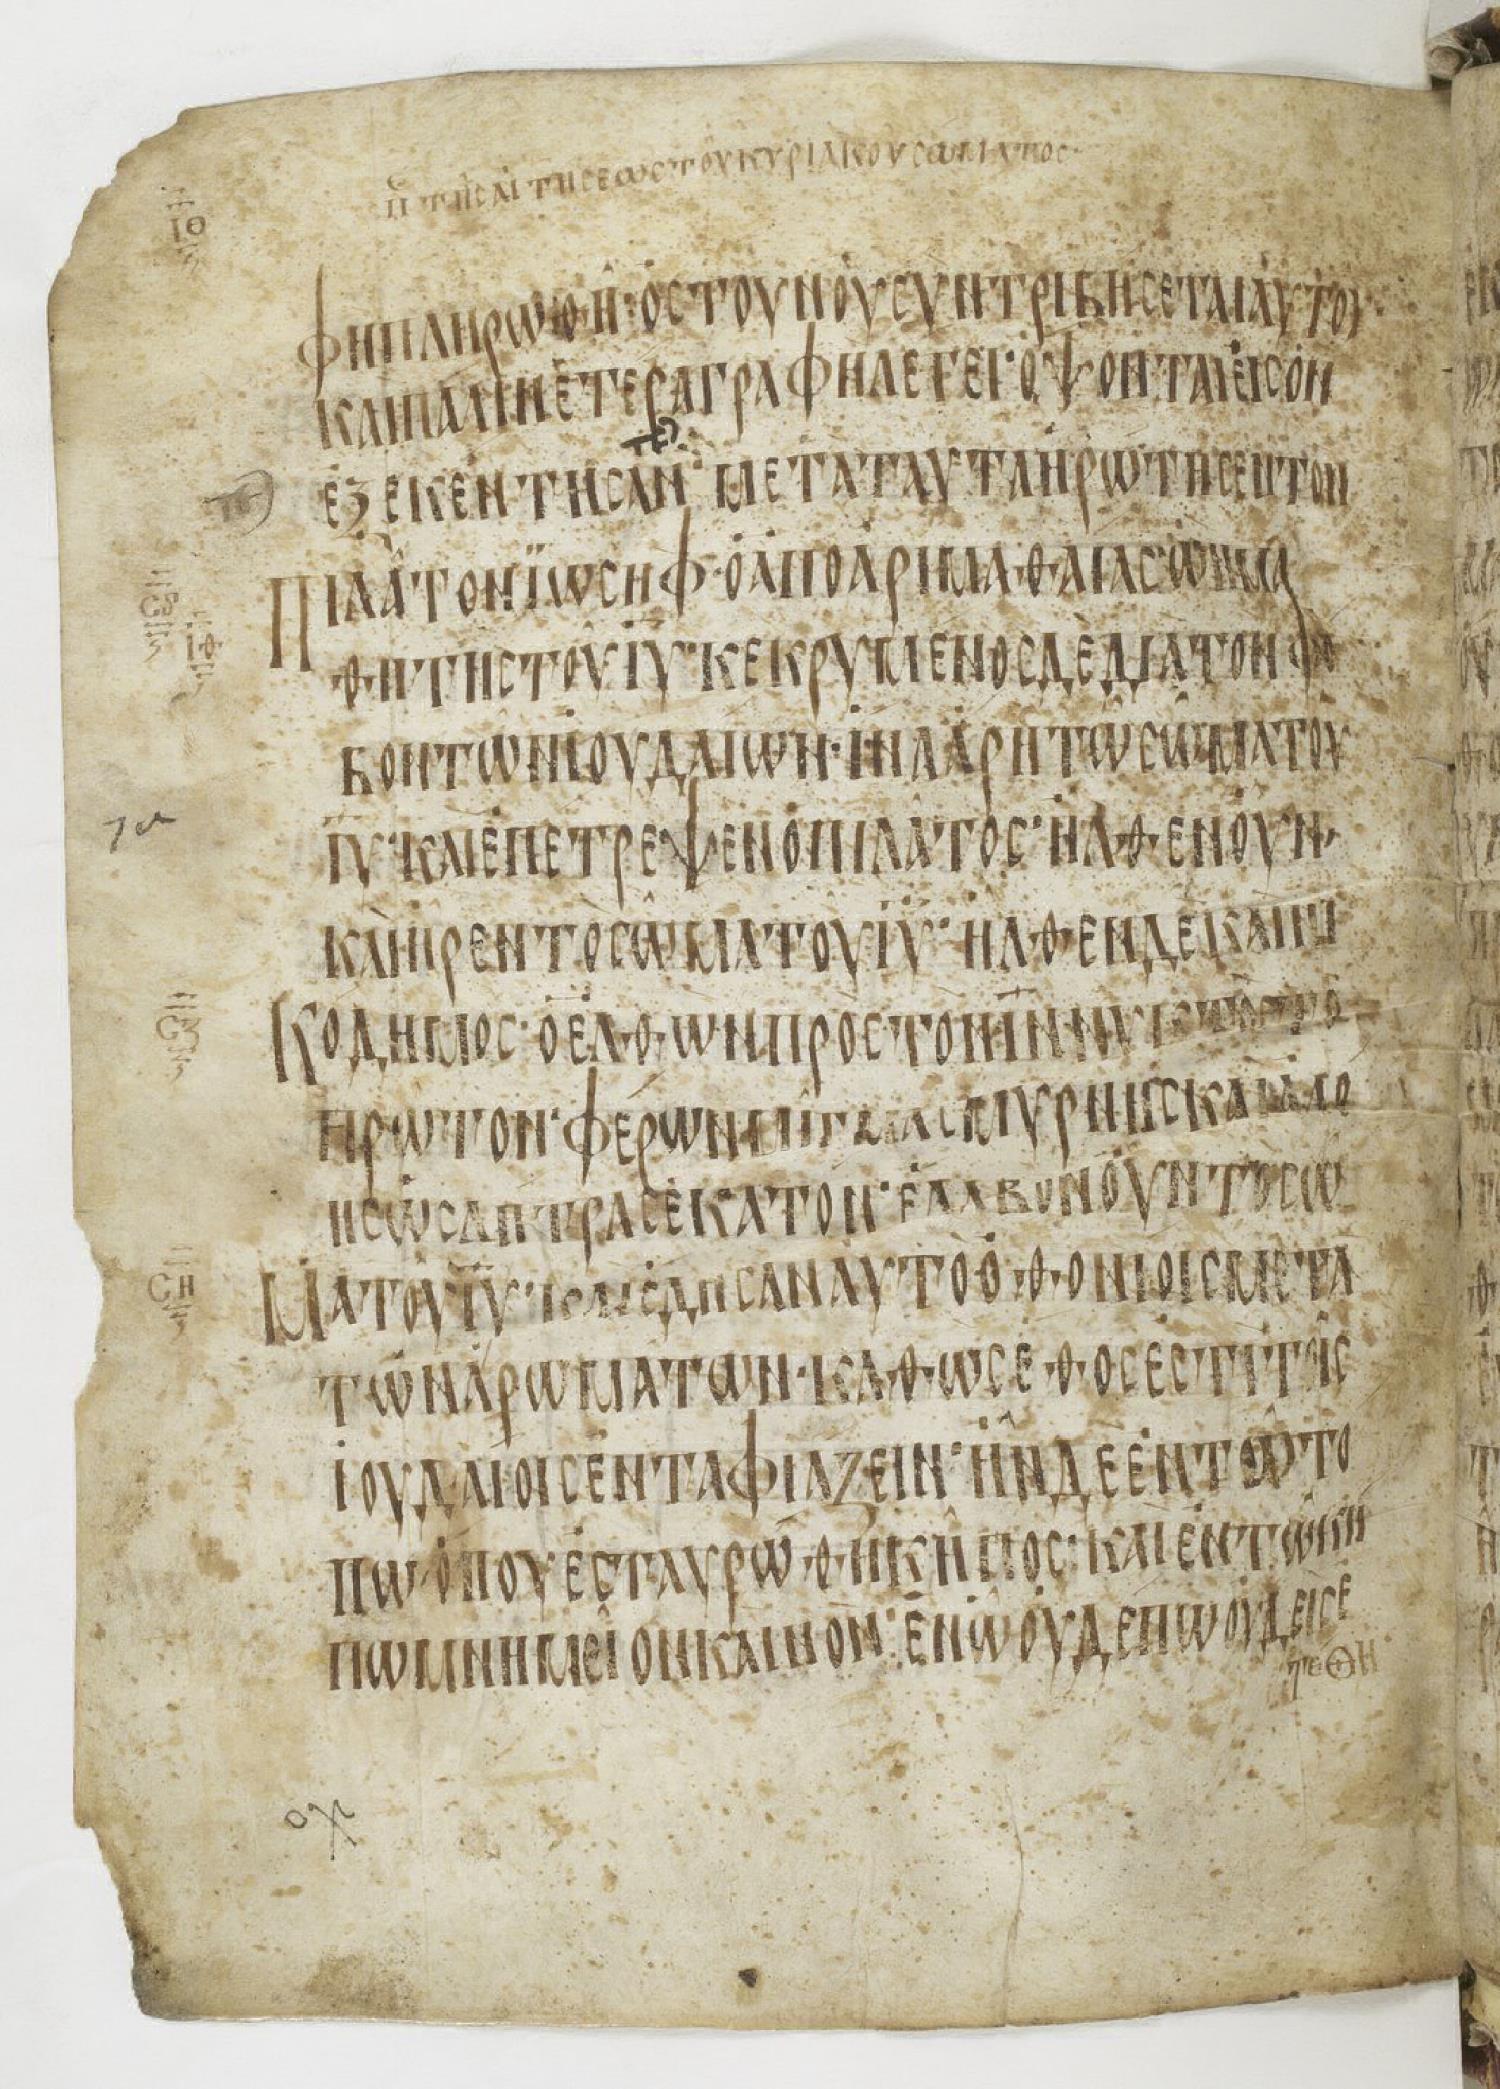 ΙΘ
ΙΗ ΤΗΣ ΑΙΤΗΣΕΩΣ ΤΟΥ ΚΥΡΙΑΚΟΥ ΣΩΜΑΤΟΣ·
ΦΗ ΠΛΗΡΩΘΗ· ΟΣΤΟΥΝ ΟΥ ΣΥΝΤΡΙΒΗΣΕΤΑΙ ΑΥΤΟΥ·
ΚΑΙ ΠΑΛΙΝ ΕΤΕΡΑ ΓΡΑΦΗ ΛΕΓΕΙ· ΟΨΟΝΤΑΙ ΕΙΣ ΟΝ
ΕΞΕΚΕΝΤΗΣΑΝ· ΜΕΤΑ ΤΑΥΤΑ ΗΡΩΤΗΣΕΝ ΤΟΝ
ΠΙΛΑΤΟΝ ΙΩΣΗΦ· Ο ΑΠΟ ΑΡΙΜΑΘΑΙΑΣ· ΩΝ ΜΑ
ΘΗΤΗΣ ΤΟΥ ΙΥ· ΚΕΚΡΥΜΕΝΟΣ ΔΕ ΔΙΑ ΤΟΝ ΦΟ
ΒΟΝ ΤΩΝ ΙΟΥΔΑΙΩΝ· ΙΝΑ ΑΡΗ ΤΩ ΣΩΜΑ ΤΟΥ
ΙΥ· ΚΑΙ ΕΠΕΤΡΕΨΕΝ Ο ΠΙΛΑΤΟΣ· ΗΛΘΕΝ ΟΥΝ·
ΚΑΙ ΗΡΕΝ ΤΟ ΣΩΜΑ ΤΟΥ ΙΥ· ΗΛΘΕΝ ΔΕ ΚΑΙ ΝΙ
ΚΟΔΗΜΟΣ· Ο ΕΛΘΩΝ ΠΡΟΣ ΤΟΝ ΙΝ ΝΥΚΤΟΣ ΤΟ
ΠΡΩΤΟΝ· ΦΕΡΩΝ ΜΙΓΜΑ ΣΜΥΡΝΗΣ ΚΑΙ ΑΛΟ
ΗΣ ΩΣ ΛΗΤΡΑΣ ΕΚΑΤΟΝ· ΕΛΑΒΟΝ ΟΥΝ ΤΟ ΣΩ
ΜΑ ΤΟΥ ΙΥ· ΚΑΙ ΕΔΗΣΑΝ ΑΥΤΟ ΟΘΟΝΙΟΙΣ ΜΕΤΑ
ΤΩΝ ΑΡΩΜΑΤΩΝ· ΚΑΘΩΣ ΕΘΟΣ ΕΣΤΙ ΤΟΙΣ
ΙΟΥΔΑΙΟΙΣ ΕΝΤΑΦΙΑΖΕΙΝ· ΗΝ ΔΕ ΕΝ ΤΩ ΤΟ
ΠΩ· ΟΠΟΥ ΕΣΤΑΥΡΩΘΗ ΚΗΠΟΣ· ΚΑΙ ΕΝ ΤΩ ΚΗ
ΠΩ ΜΝΗΜΕΙΟΝ ΚΑΙΝΟΝ· ΕΝ Ω ΟΥΔΕΠΩ ΟΥΔΕΙΣ Ε
ΤΕΘΗ
ΣϚ
ΙΘ
ΣΖ
ΣΗ